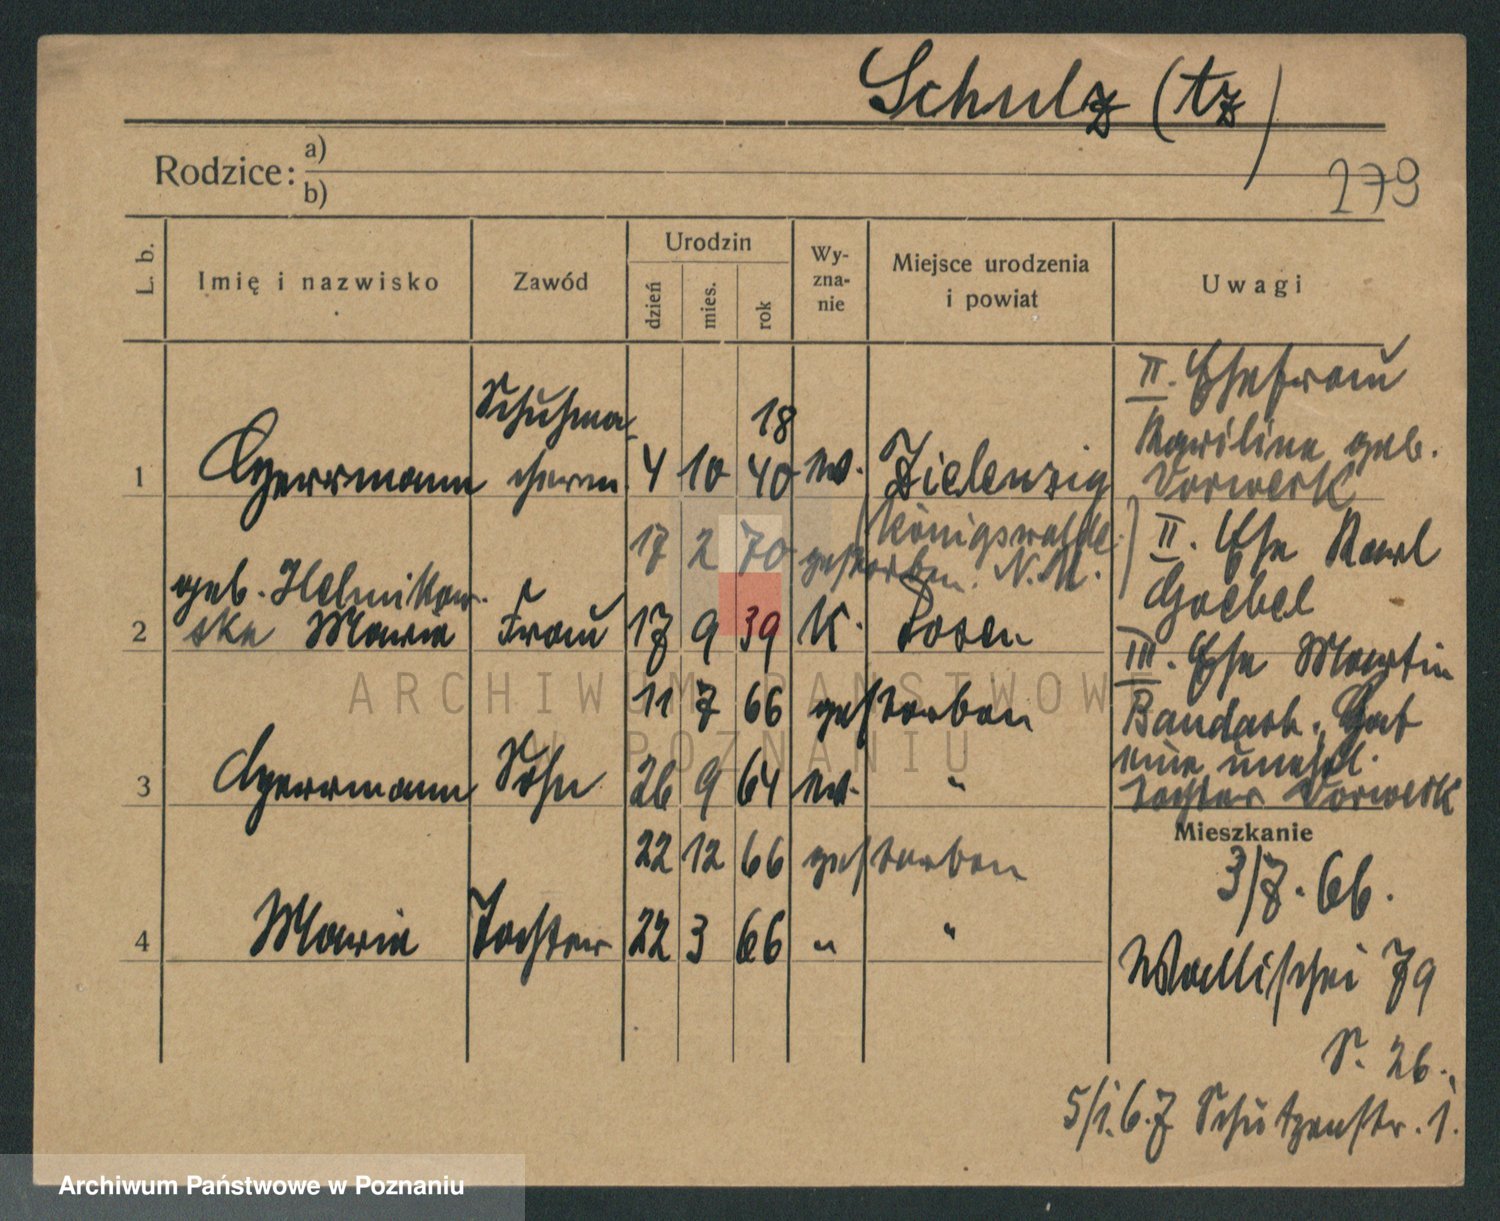 Schulz (tz)
Rodzice: a)
b)
279
L. b.
Imię i nazwisko
Zawód
Urodzin
dzień
mies.
rok
Wy-
zna-
nie
Miejsce urodzenia
i powiat
Uwagi
1
Herrmann
Schuhma-
cherm.
4 10 18
40
ev.
Zielenzig
Königswalde
N.M.
17 2 70 gestorben.
2
geb.
Maria
Frau
17 9 39
K.
Posen
11 7 66 gestorben
3
Herrmann
Sohn
26 9 64
ev.
"
22 12 66 gestorben
4
Maria
Tochter
22 3 66
"
"
II. Ehefrau
geb.
Vorwerk
II. Ehe Karl
Goebel
III. Ehe Martin
Hat
eine unehl.
Tochter Vorwerk
Mieszkanie
3/7. 66.
Wallischei 79
S. 26.
5/1. 67 Schützenstr. 1.
ARCHIWUM PAŃSTWOWE
W POZNANIU
Archiwum Państwowe w Poznaniu